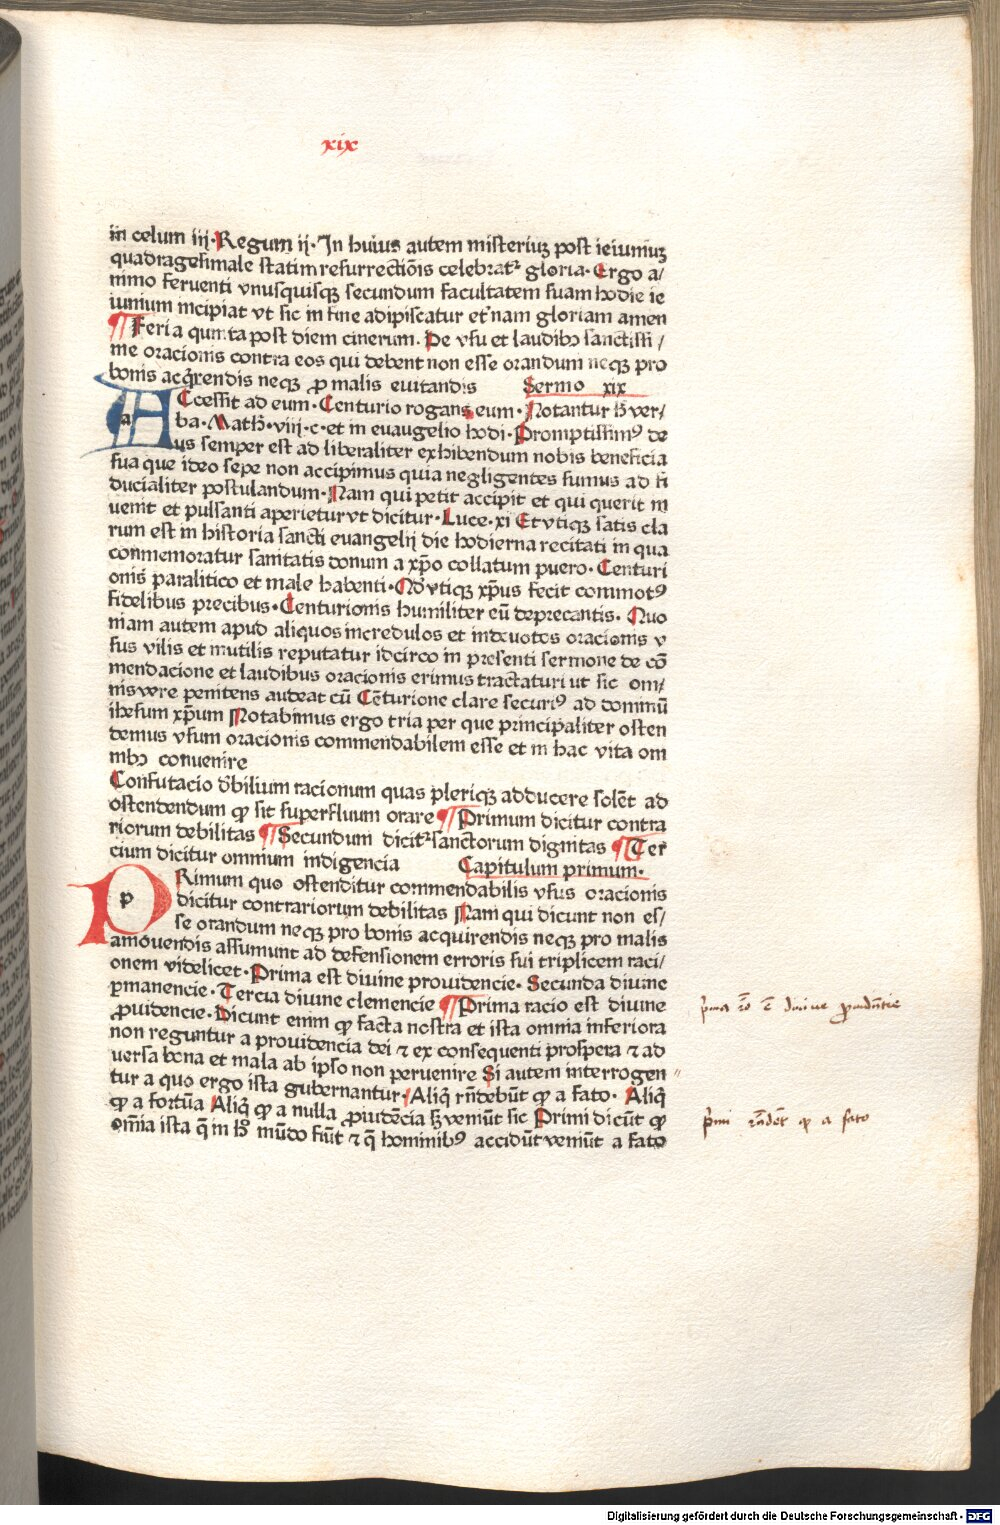 xix
in celum iij·Regum ij·In huius autem misteriuꝫ post ieiuniuꝫ
quadragesimale statim resurrectiōis celebratᷣ gloria·Ergo a/
nimo ferventi vnusquisqꝫ secundum facultatem suam hodie ie
iunium incipiat vt sic in fine adipiscatur et̓nam gloriam amen
¶Feria quinta post diem cinerum. De vsu et laudibꝫ sanctissi/
me oracionis contra eos qui debent non esse orandum neqꝫ pro
bonis acq̇rendis neqꝫ ꝓ malis euitandis Sermo xix
ACcessit ad eum·Centurio rogans eum·Notantur h̄ ver/
ba·Math̄·viij·c·et in euaugelio hodi·Promptissimꝰ de
us semper est ad liberaliter exhibendum nobis beneficia
sua que ideo sepe non accipimus quia negligentes sumus ad fi
ducialiter postulandum·Nam qui petit accipit et qui querit in
uenit et pulsanti aperietur vt dicitur·Luce·xi Et vtiqꝫ satis cla
rum est in historia sancti euangelij die hodierna recitati in qua
conmemoratur sanitatis donum a xp̄o collatum puero·Centuri
onis paralitico et male habenti·Qd̓ vtiqꝫ xp̄us fecit commotꝰ
fidelibus precibus·Centurionis humiliter eū deprecantis·Quo
niam autem apud aliquos incredulos et indeuotos oracionis v
sus vilis et inutilis reputatur idcirco in presenti sermone de cō
mendacione et laudibus oracionis erimus tractaturi ut sic om/
nis vere penitens audeat cū Cēturione clare securiꝰ ad dominū
ihesum xp̄um Notabimus ergo tria per que principaliter osten
demus vsum oracionis commendabilem esse et in hac vita om
nibꝫ convenire
Confutacio d̓bilium racionum quas pleriqꝫ adducere solēt ad
ostendendum ꝙ sit superfluum orare ¶Primum dicitur contra
riorum debilitas ¶Secundum dicitᷣ sanctorum dignitas ¶Ter
cium dicitur omnium indigencia Capitulum primum·
PRimum quo ostenditur commendabilis vsus oracionis
dicitur contrariorum debilitas Nam qui dicunt non es/
se orandum neqꝫ pro bonis acquirendis neqꝫ pro malis
amouendis assumunt ad defensionem erroris sui triplicem raci/
onem videlicet·Prima est divine providencie·Secunda divine
ꝑmanencie·Tercia divine clemencie ¶Prima racio est divine
ꝓuidencie·Dicunt enim ꝙ facta nostra et ista omnia inferiora
non reguntur a providencia dei ⁊ ex consequenti prospera ⁊ ad
uersa bona et mala ab ipso non pervenire Si autem interrogen
tur a quo ergo ista gubernantur·Aliq̇ rn̄debūt ꝙ a fato·Aliq̇
ꝙ a fortūa Aliq̇ ꝙ a nulla ꝓuidēcia sꝫ veniūt sic Primi dicūt ꝙ
om̄ia ista q̄ in h̓ mūdo fiūt ⁊ q̄ hominibꝰ accidūt veniūt a fato
p̓ma rō ē diuine ꝓuidētie
p̓mi rn̄dēt ꝙ a fato
Digitalisierung gefördert durch die Deutsche Forschungsgemeinschaft · DFG